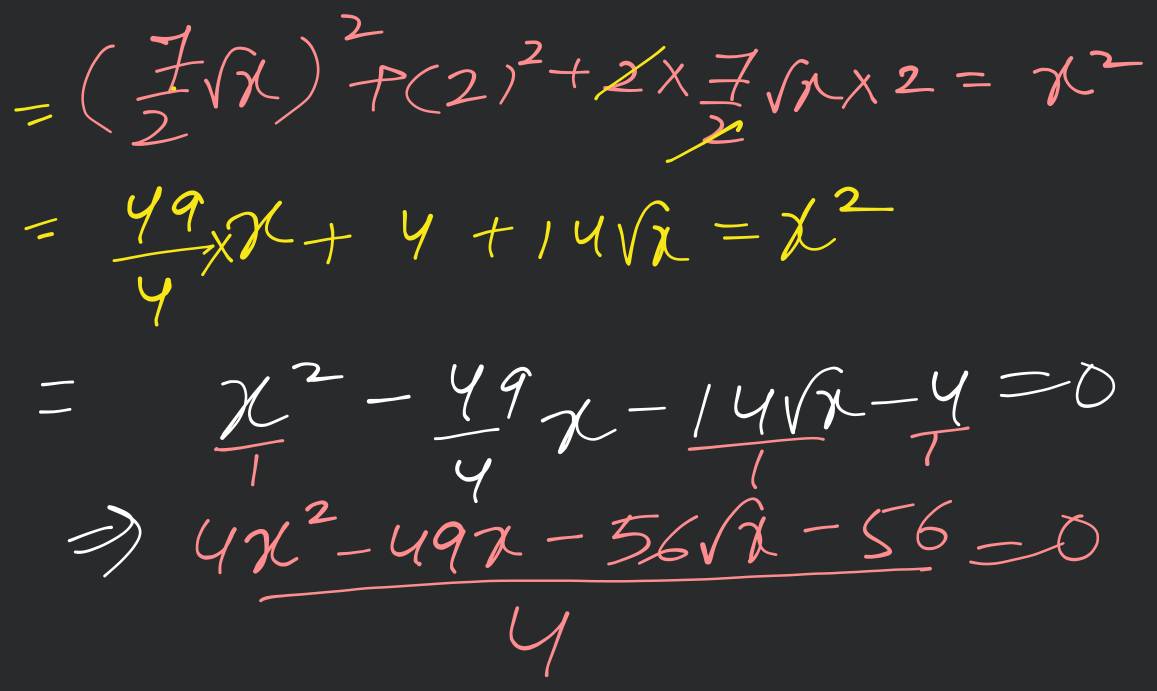 = (7/2 √x)² + (2)² + 2 × 7/2 √x × 2 = x²
= 49/4 × x + 4 + 14√x = x²
= x²/1 - 49/4 x - 14√x/1 - 4/1 = 0
⇒ (4x² - 49x - 56√x - 56)/4 = 0